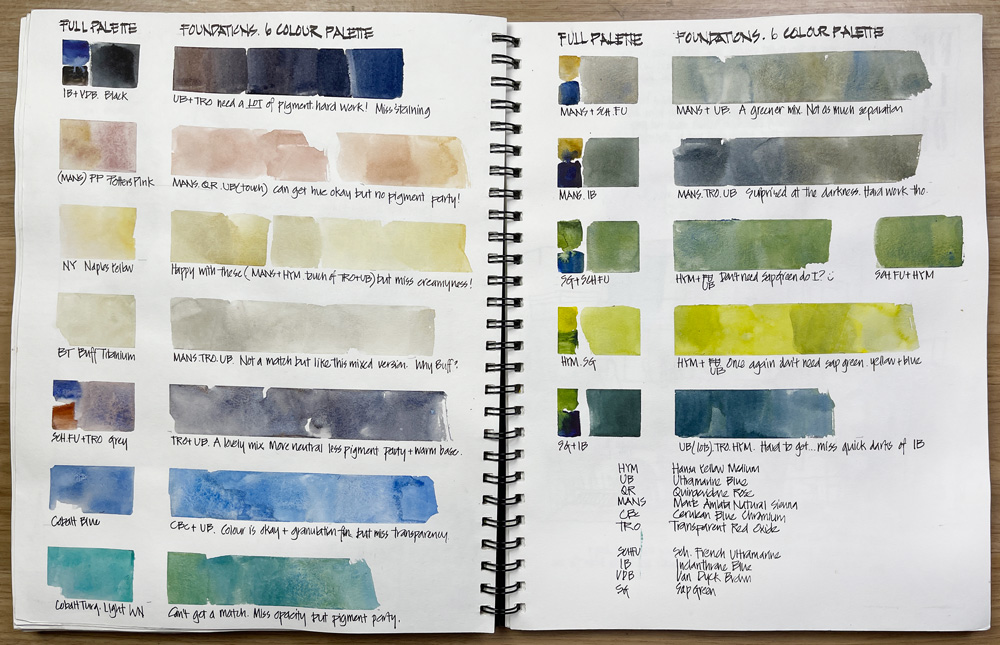 FULL PALETTE
FOUNDATIONS. 6 COLOUR PALETTE
IB+VDB. Black
UB+TRO need a LOT of pigment. hard work! Miss staining
(MANS) PP Potters Pink
MANS. QR. UB(touch) can get hue okay but no pigment party!
NY Naples Yellow
Happy with these (MANS+HYM touch of TRO+UB) but miss creamyness!
BT Buff Titanium
MANS. TRO. UB. Not a match but like this mixed version. Why Buff?
SCH.FU+TRO grey
TRO+UB. A lovely mix. More neutral less pigment party + warm base.
Cobalt Blue
CBC+UB. Colour is okay + granulation fin. but miss transparency.
Cobalt Turq. Light WN
Can't get a match. Miss opacity but pigment party.
FULL PALETTE
FOUNDATIONS. 6 COLOUR PALETTE
MANS+SCH.FU
MANS+UB. A greener mix. Not as much separation
MANS. IB
MANS. TRO. UB Surprised at the darkness. Hard work tho.
SG+SCH.FU
HYM+ UB Don't need sap green do I? :)
SCH.FU+HYM
HYM. SG
HYM+ UB Once again don't need sap green. yellow+blue
SG+IB
UB(lots). TRO. HYM. Hard to get... miss quick darks of IB
HYM Hansa Yellow Medium
UB Ultramarine Blue
QR Quinacridone Rose
MANS Monte Amiata Natural Sienna
CBC Cerulean Blue Chromium
TRO Transparent Red Oxide
SCHFU Sch. French Ultramarine
IB Indanthrone Blue
VDB Van Dyck Brown
SG Sap Green